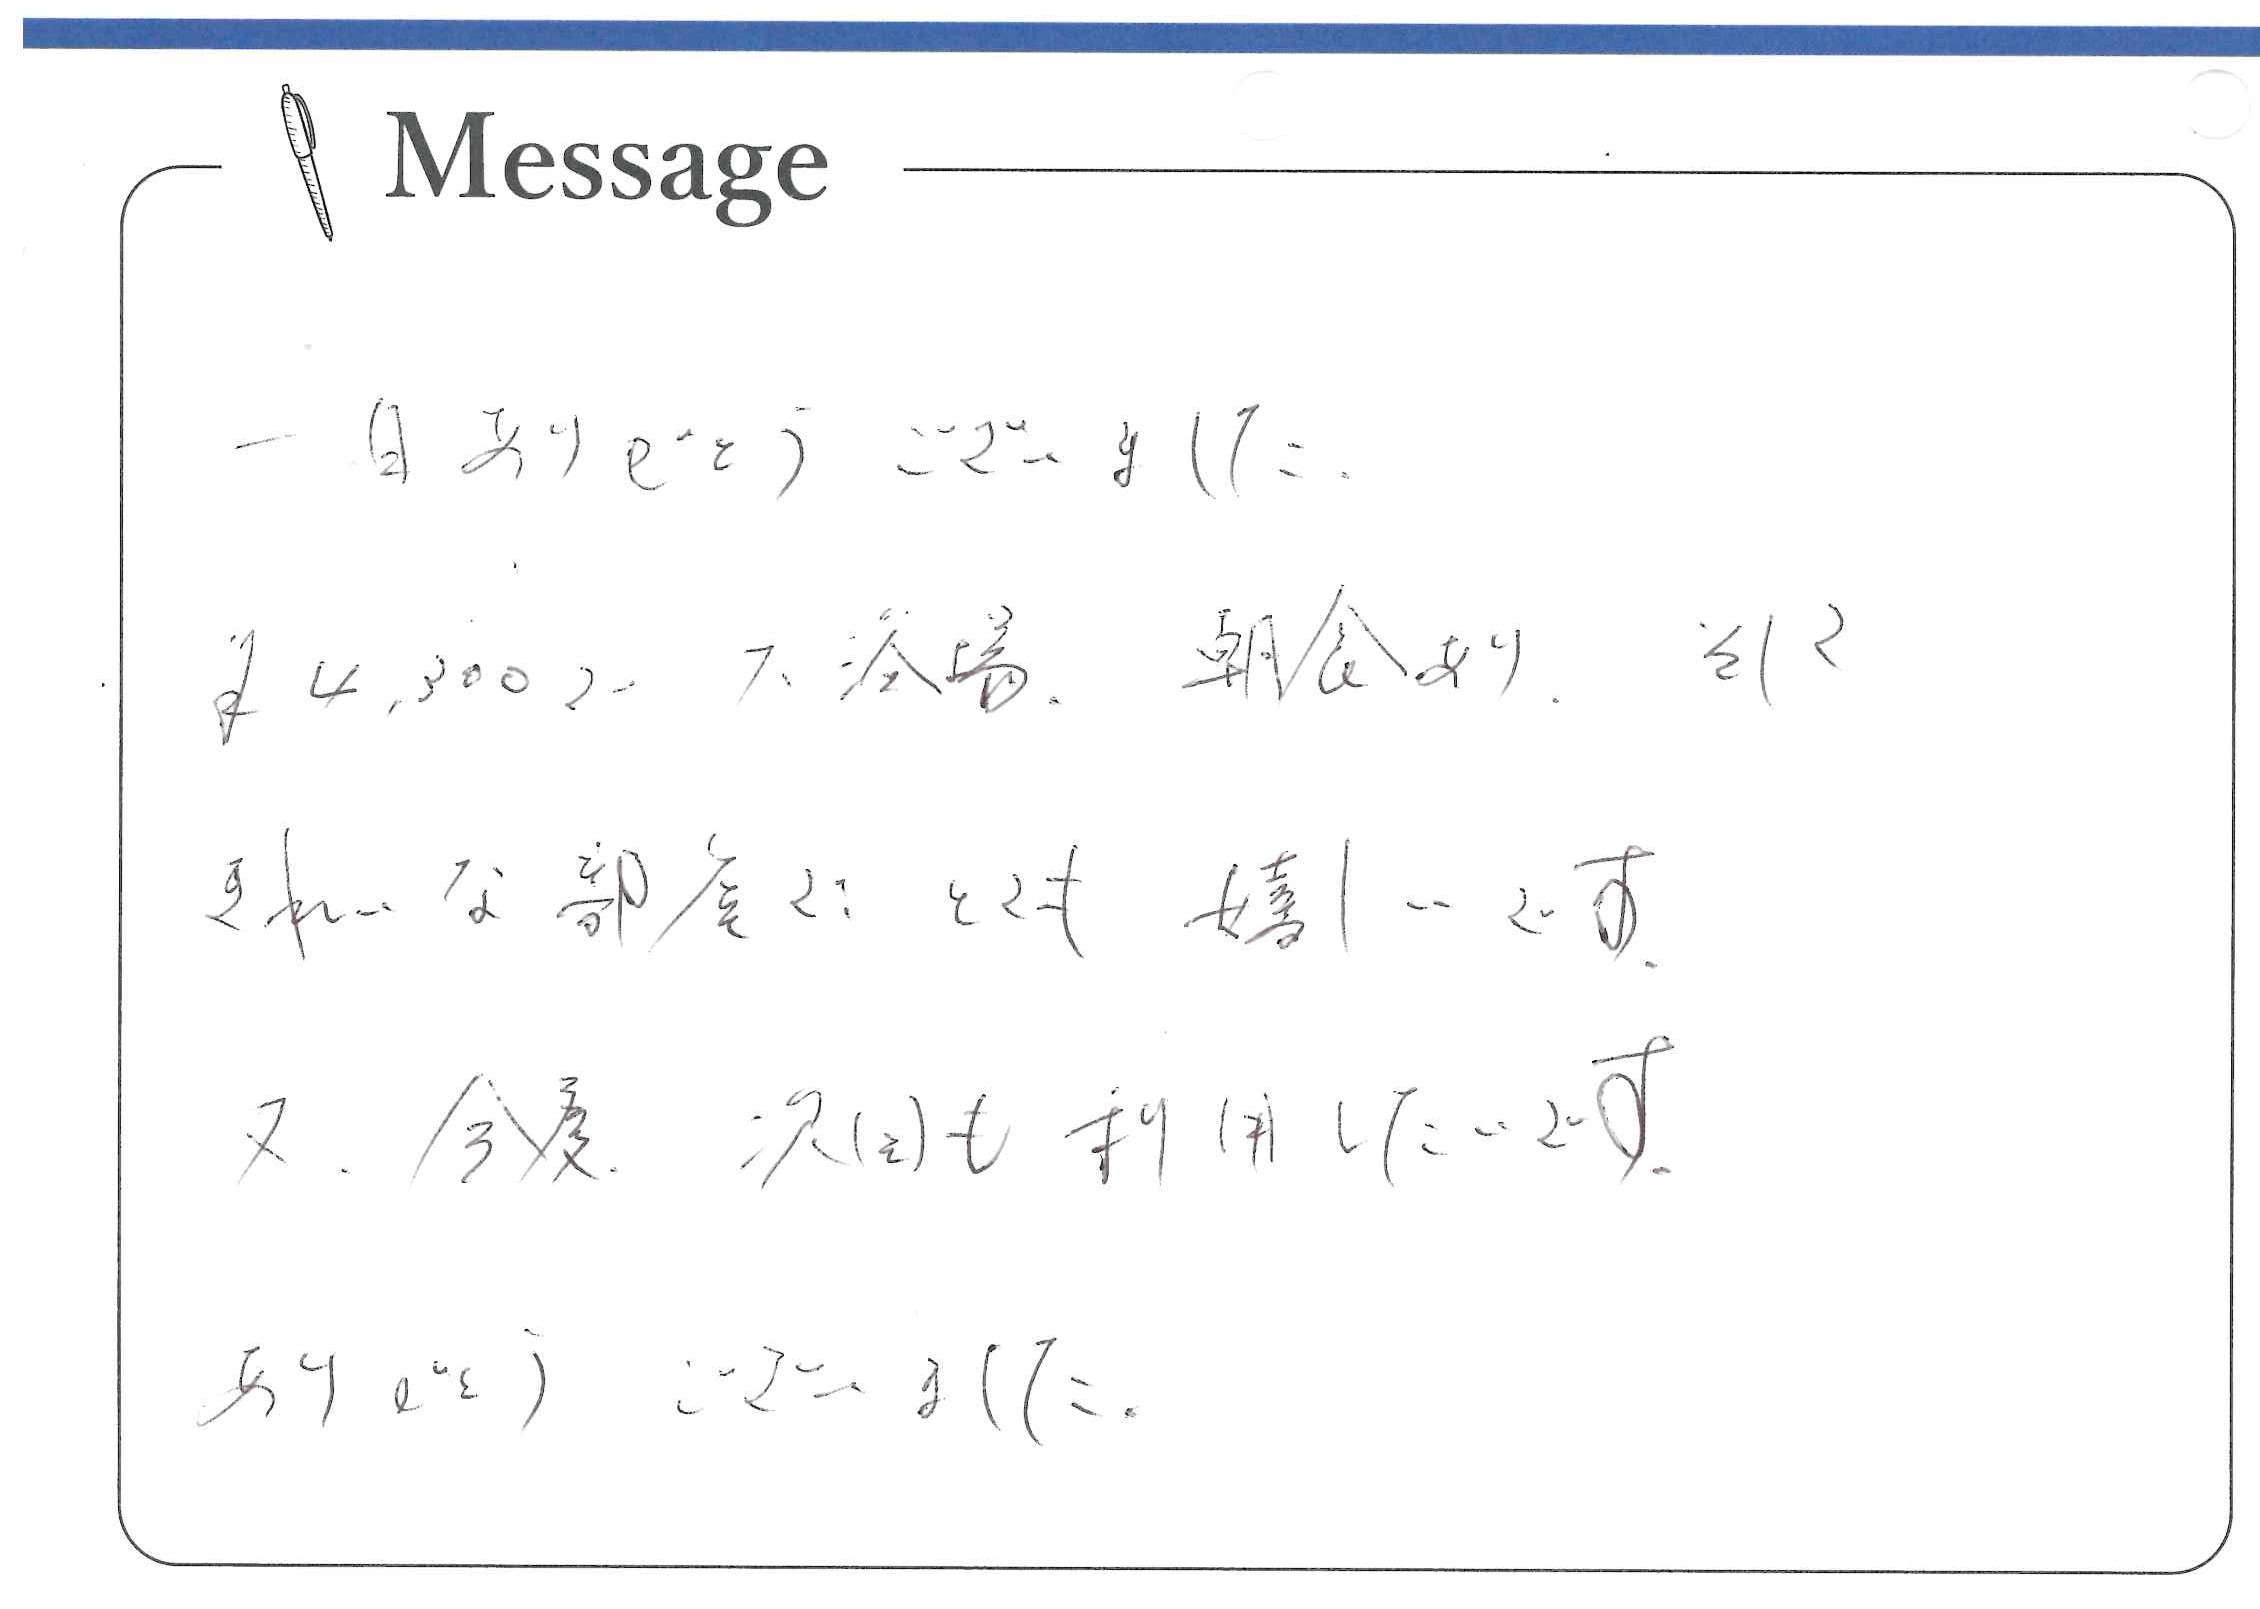 Message
一日ありがとうございました.
¥4,300で 大浴場. 朝食あり. そして
きれいな部屋で とても 嬉しいです.
又. 今度. 次回も 利用したいです.
ありがとう ございました.